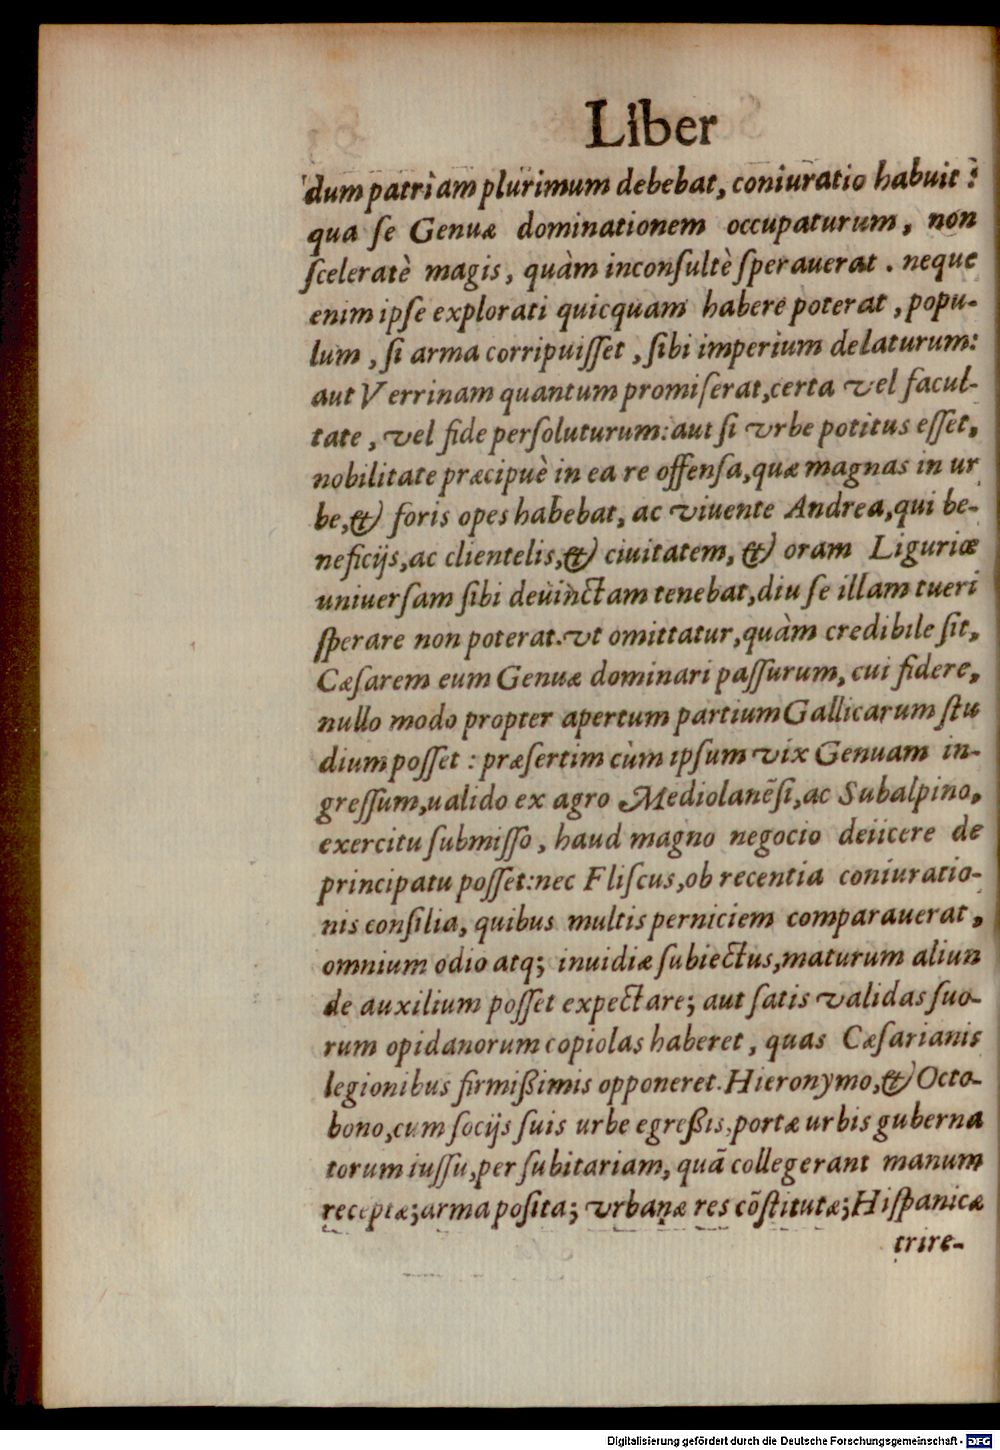 Liber
dum patriam plurimum debebat, coniuratio habuit:
qua ſe Genuæ dominationem occupaturum, non
ſceleratè magis, quàm inconſultè ſperauerat. neque
enim ipſe explorati quicquam habere poterat, popu-
lum, ſi arma corripuiſſet, ſibi imperium delaturum:
aut Verrinam quantum promiſerat, certa vel facul-
tate, vel fide perſoluturum: aut ſi vrbe potitus eſſet,
nobilitate præcipuè in ea re offenſa, quæ magnas in ur
be, & foris opes habebat, ac viuente Andrea, qui be-
neficijs, ac clientelis, & ciuitatem, & oram Liguriæ
uniuerſam ſibi deuinctam tenebat, diu ſe illam tueri
ſperare non poterat. vt omittatur, quàm credibile ſit,
Cæſarem eum Genuæ dominari paſſurum, cui fidere,
nullo modo propter apertum partium Gallicarum ſtu
dium poſſet: præſertim cùm ipſum vix Genuam in-
greſſum, ualido ex agro Mediolanẽſi, ac Subalpino,
exercitu ſubmiſſo, haud magno negocio deiicere de
principatu poſſet: nec Fliſcus, ob recentia coniuratio-
nis conſilia, quibus multis perniciem comparauerat,
omnium odio atq; inuidiæ ſubiectus, maturum aliun
de auxilium poſſet expectare; aut ſatis validas ſuo-
rum opidanorum copiolas haberet, quas Cæſarianis
legionibus firmißimis opponeret. Hieronymo, & Octo-
bono, cum ſocijs ſuis urbe egreßis, portæ urbis guberna
torum iuſſu, per ſubitariam, quã collegerant manum
receptæ; arma poſita; vrbanæ res cõſtitutæ; Hiſpanicæ
trire-
Digitalisierung gefördert durch die Deutsche Forschungsgemeinschaft - DFG